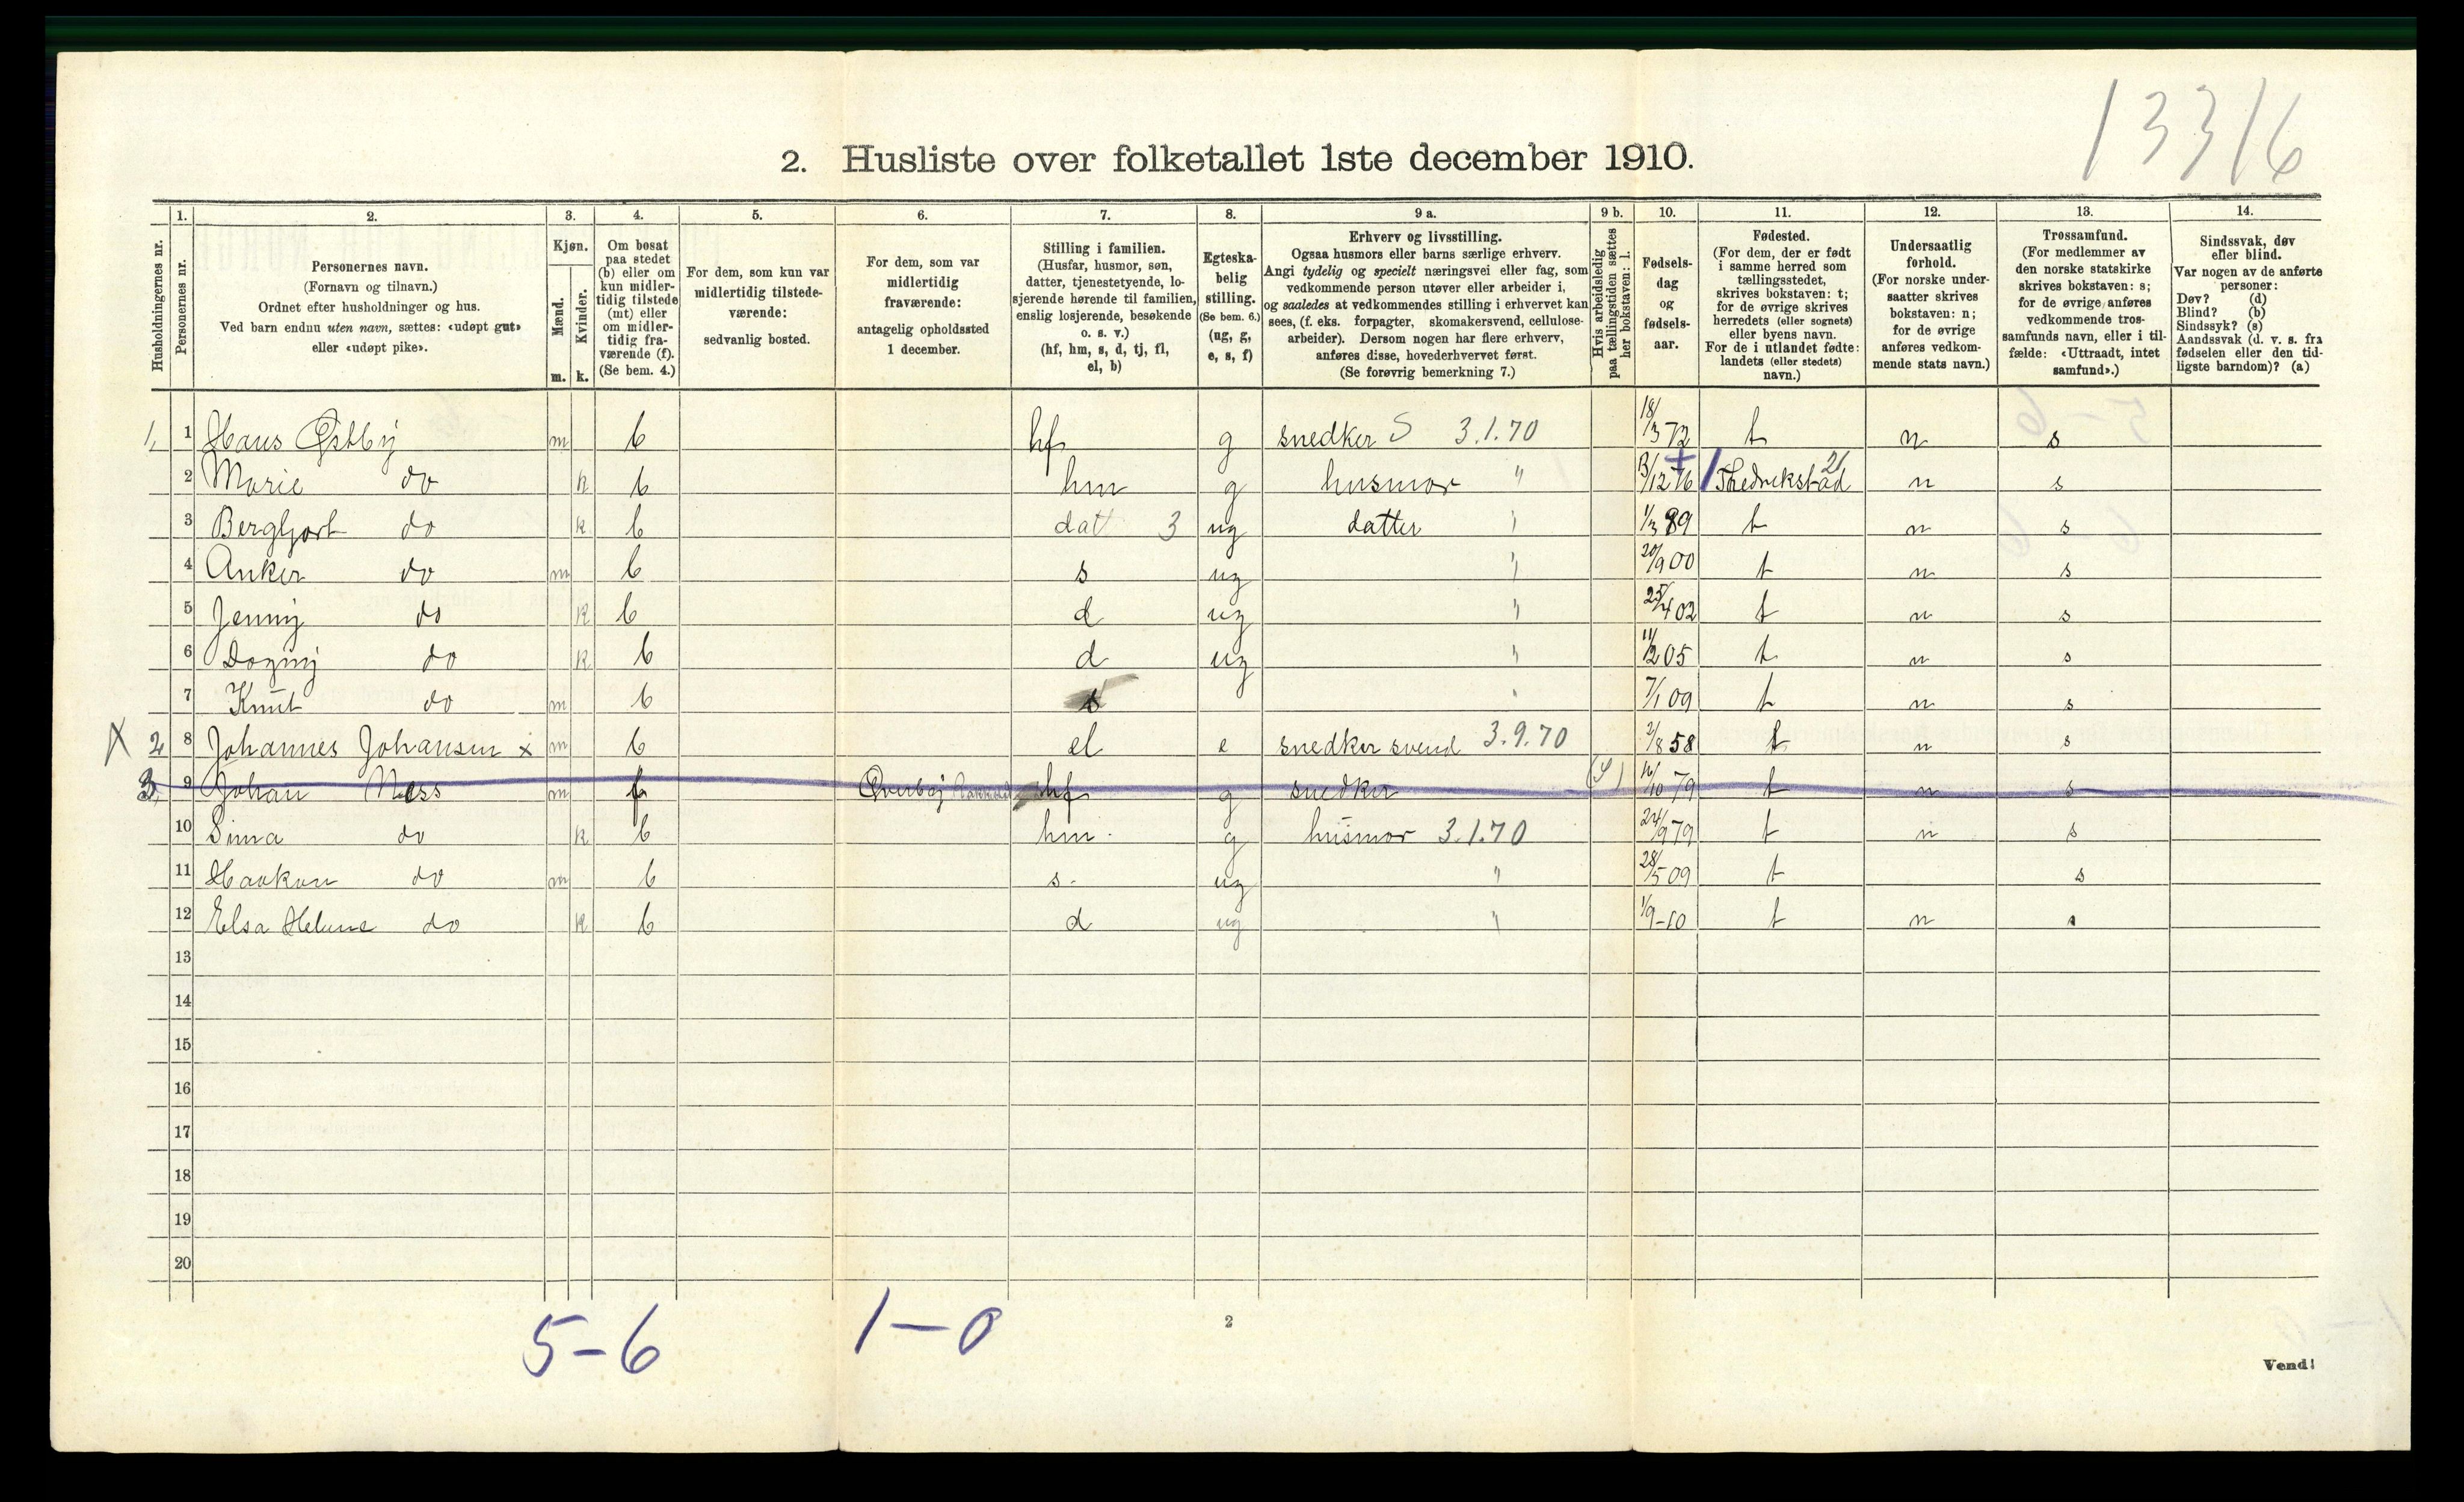 13316
2. Husliste over folketallet 1ste december 1910.
Husholdningernes nr.
1. Personernes nr.
2. Personernes navn.
(Fornavn og tilnavn.)
Ordnet efter husholdninger og hus.
Ved barn endnu uten navn, sættes: «udøpt gut»
eller «udøpt pike».
3. Kjøn.
Mænd. m.
Kvinder. k.
4. Om bosat
paa stedet
(b) eller om
kun midler-
tidig tilstede
(mt) eller
om midler-
tidig fra-
værende (f).
(Se bem. 4.)
5. For dem, som kun var
midlertidig tilstede-
værende:
sedvanlig bosted.
6. For dem, som var
midlertidig
fraværende:
antagelig opholdssted
1 december.
7. Stilling i familien.
(Husfar, husmor, søn,
datter, tjenestetyende, lo-
sjerende hørende til familien,
enslig losjerende, besøkende
o. s. v.)
(hf, hm, s, d, tj, fl,
el, b)
8. Egteska-
belig
stilling.
(Se bem. 6.)
(ug, g,
e, s, f)
9 a. Erhverv og livsstilling.
Ogsaa husmors eller barns særlige erhverv.
Angi tydelig og specielt næringsvei eller fag, som
vedkommende person utøver eller arbeider i,
og saaledes at vedkommendes stilling i erhvervet kan
sees, (f. eks. forpagter, skomakersvend, cellulose-
arbeider). Dersom nogen har flere erhverv,
anføres disse, hovederhvervet først.
(Se forøvrig bemerkning 7.)
9 b. Hvis arbeidsledig
paa tællingstiden sættes
her bokstaven: l.
10. Fødsels-
dag
og
fødsels-
aar.
11. Fødested.
(For dem, der er født
i samme herred som
tællingsstedet,
skrives bokstaven: t;
for de øvrige skrives
herredets (eller sognets)
eller byens navn.
For de i utlandet fødte:
landets (eller stedets)
navn.)
12. Undersaatlig
forhold.
(For norske under-
saatter skrives
bokstaven: n;
for de øvrige
anføres vedkom-
mende stats navn.)
13. Trossamfund.
(For medlemmer av
den norske statskirke
skrives bokstaven: s;
for de øvrige anføres
vedkommende tros-
samfunds navn, eller i til-
fælde: «Uttraadt, intet
samfund».)
14. Sindssvak, døv
eller blind.
Var nogen av de anførte
personer:
Døv? (d)
Blind? (b)
Sindssyk? (s)
Aandssvak (d. v. s. fra
fødselen eller den tid-
ligste barndom)? (a)
1, 1 Hans Østby m b hf g snedker S 3.1.70 18/3 72 t n s
2 Marie do k b hm g husmor " 13/12 76 Fredrikstad 21 n s
3 Bergljort do k b dat 3 ug datter " 1/3 89 t n s
4 Anker do m b s ug " 20/9 00 t n s
5 Jenny do k b d ug " 25/4 02 t n s
6 Dagny do k b d ug " 11/2 05 t n s
7 Knut do m b s " 7/1 09 t n s
X 2, 8 Johannes Johansen x m b el e snedker svend 3.9.70 2/8 58 t n s
3, 9 Johan Ness m f hf g snedker 16/10 79 t n s
10 Sina do k b hm. g husmor 3.1.70 24/9 79 t n s
11 Haakon do m b s. ug " 28/5 09 t s
12 Elsa Helene do k b d ug " 1/9-10 t n s
13
14
15
16
17
18
19
20
5-6 1-0
2
Vend!